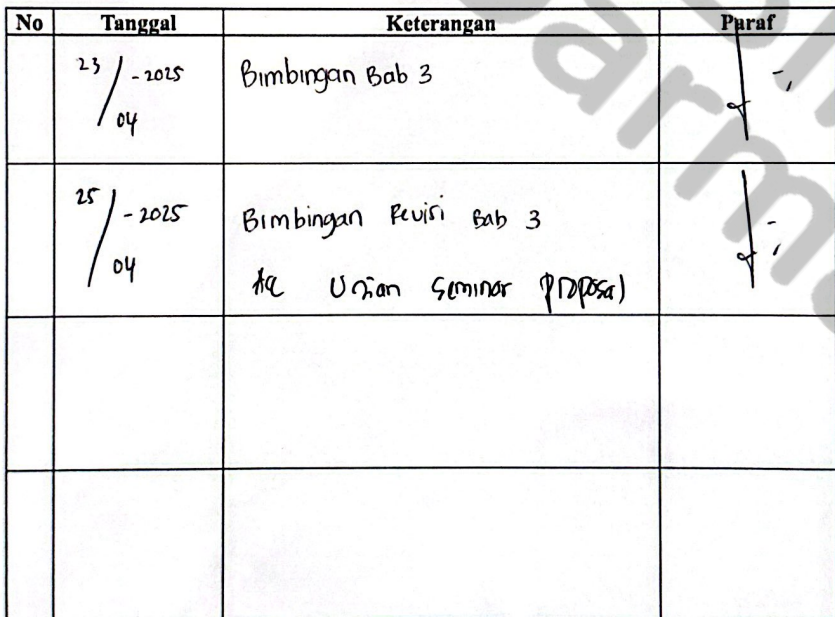 No Tanggal Keterangan Paraf
23/04 - 2025 Bimbingan Bab 3
25/04 - 2025 Bimbingan Revisi Bab 3
Acc Ujian Seminar Proposal